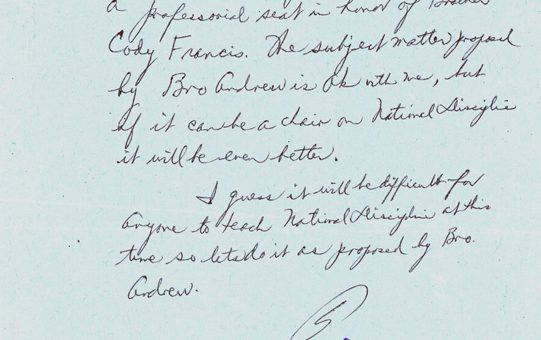 a professorial seat in honor of Brother
Cody Francis. The subject matter proposed
by Bro Andrew is ok with me, but
if it can be a chair on National Discipline
it will be even better.
I guess it will be difficult for
anyone to teach National Discipline at this
time so lets do it as proposed by Bro.
Andrew.